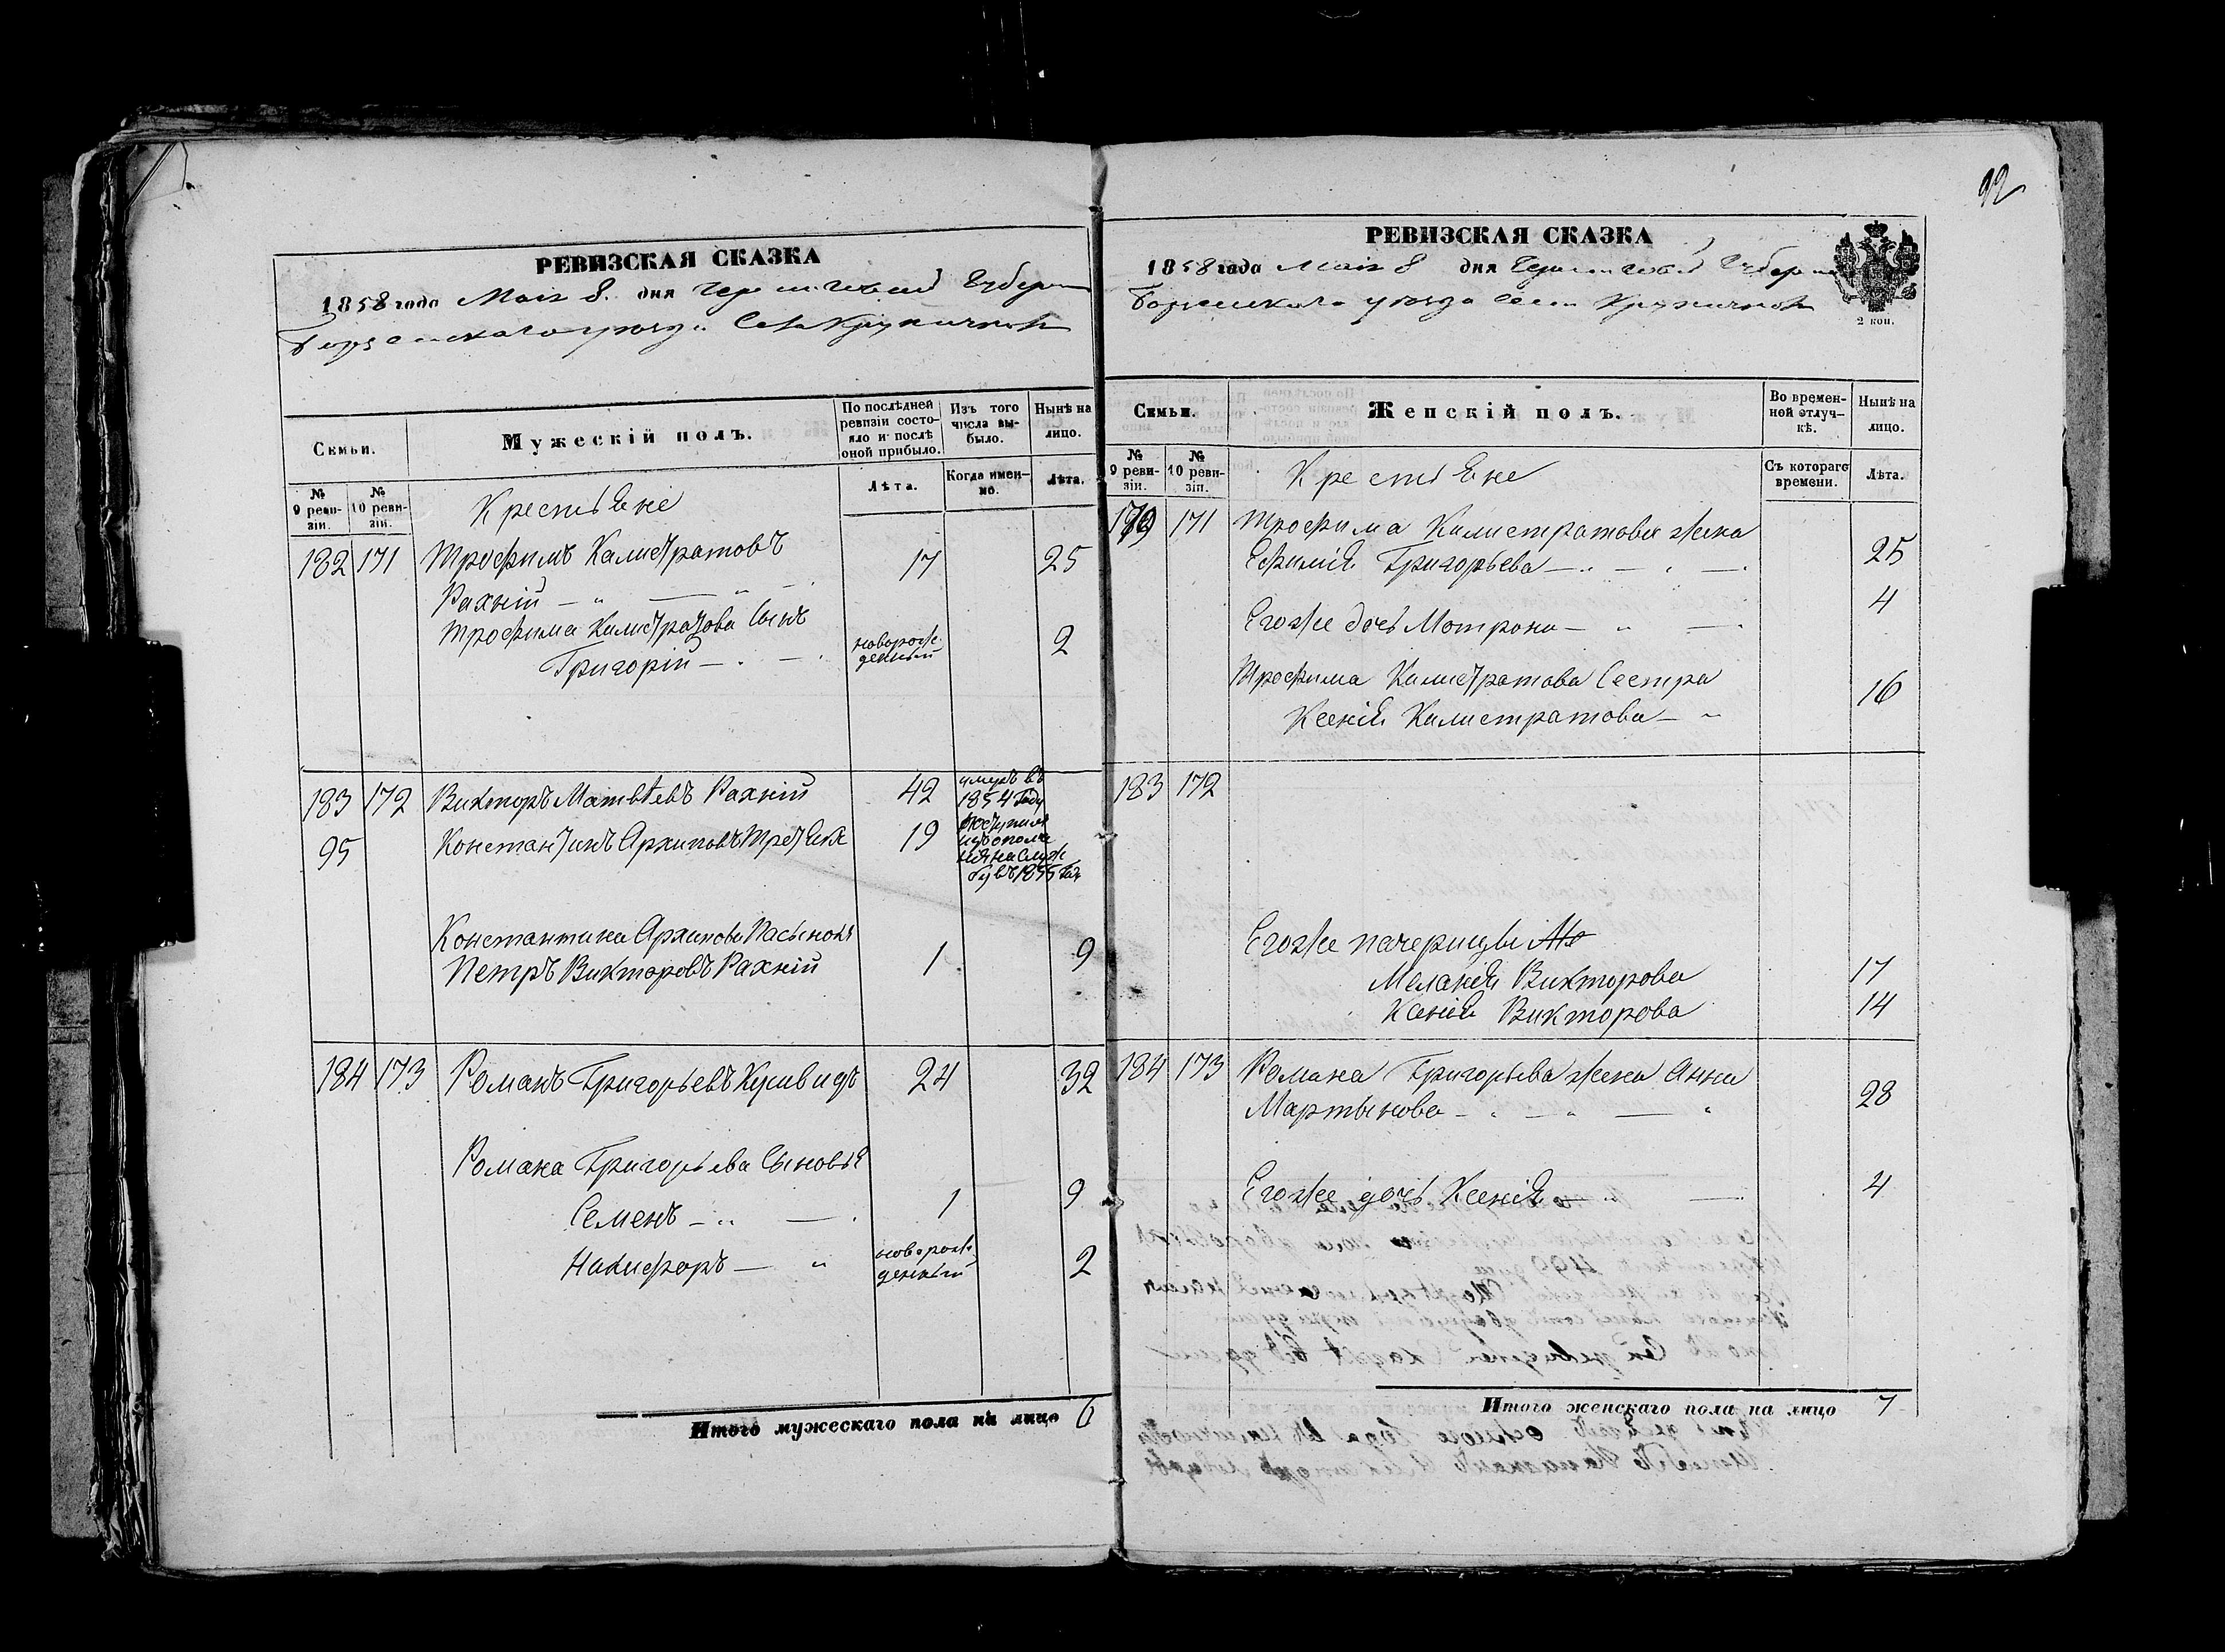 92
РЕВИЗСКАЯ СКАЗКА
1858 года Мая 8. дня Черниговской Губернии
Борзенскаго уезда Села Крупичполя
Семьи.
Мужескій полъ.
По послѣдней ревизіи состояло и послѣ оной прибыло.
Изъ того числа выбыло.
Нынѣ на лицо.
№ 9 ревизіи.
№ 10 ревизіи.
Лѣта.
Когда именно.
Лѣта.
Крестьяне
182 171 Трофимъ Калистратовъ 17 25
Рахній
Трофима Калистратова Сынъ
Григорій новорожденный 2
183 172 Викторъ Матвѣевъ Рахній 42 умеръ въ 1854 Году
95 Константинъ Архиповъ 19
1855
Константина Архипова Пасынокъ
Петръ Викторовъ Рахній 1 9
184 173 Романъ Григорьевъ 24 32
Романа Григорьева Сыновья
Семенъ 1 9
Никифоръ новорожденный 2
Итого мужескаго пола на лицо 6
РЕВИЗСКАЯ СКАЗКА
1858 года Мая 8 дня Черниговской Губернии
Борзенскаго уезда села Крупичполя
2 коп.
Семьи.
Женскій полъ.
Во временной отлучкѣ.
Нынѣ на лицо.
№ 9 ревизіи.
№ 10 ревизіи.
Съ котораго времени.
Лѣта.
Крестьяне
171 Трофима Калистратова жена
Ефимія Григорьева 25
Егоже дочь Мотрона 4
Трофима Калистратова Сестра
Ксенія Калистратова 16
183 172
Егоже пачерицы
Меланія Викторова 17
Ксенія Викторова 14
184 173 Романа Григорьева жена Анна
Мартынова 28
Егоже дочь Ксенія 4
Итого женскаго пола на лицо 7